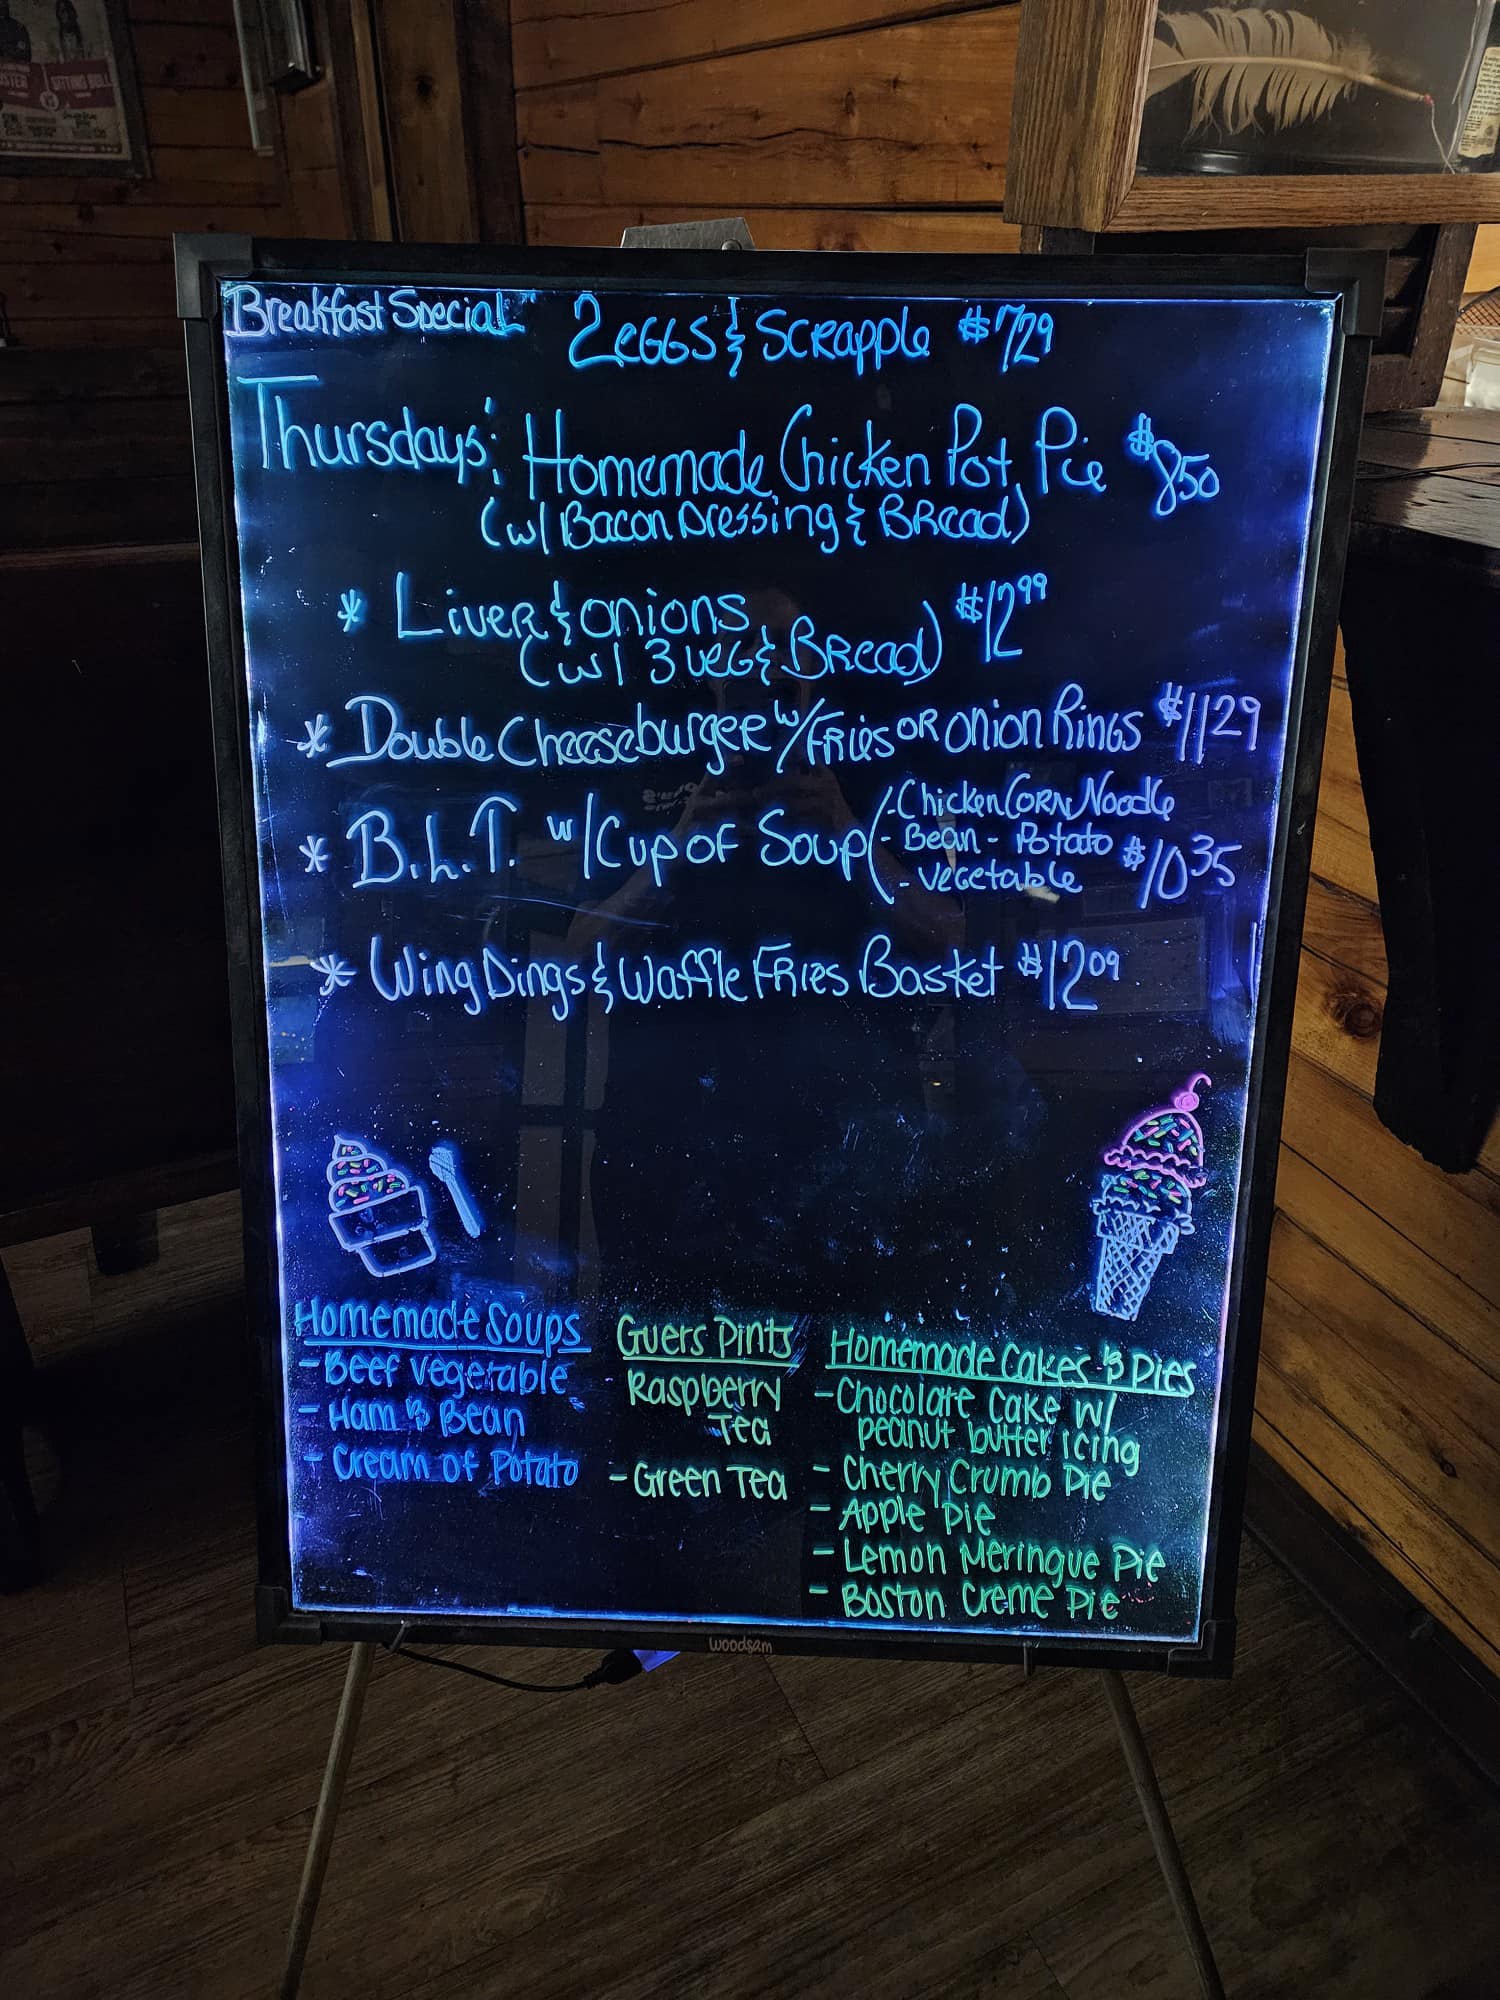 Breakfast Special
2 eggs & Scrapple $7.29
Thursdays: Homemade Chicken Pot Pie $8.50
(w/ Bacon Dressing & Bread)
* Liver & Onions $12.99
(w/ 3 veg & Bread)
* Double Cheeseburger w/ Fries or Onion Rings $11.29
* B.L.T. w/ Cup of Soup (- Chicken Corn Noodle
- Bean - Potato $10.35
- vegetable
* Wing Dings & Waffle Fries Basket $12.09
Homemade Soups
- Beef Vegetable
- Ham & Bean
- Cream of Potato
Guers Pints
Raspberry
Tea
- Green Tea
Homemade Cakes & Pies
- Chocolate Cake w/
peanut butter icing
- Cherry Crumb Pie
- Apple Pie
- Lemon Meringue Pie
- Boston Creme Pie
woodsam
SITTING BULL